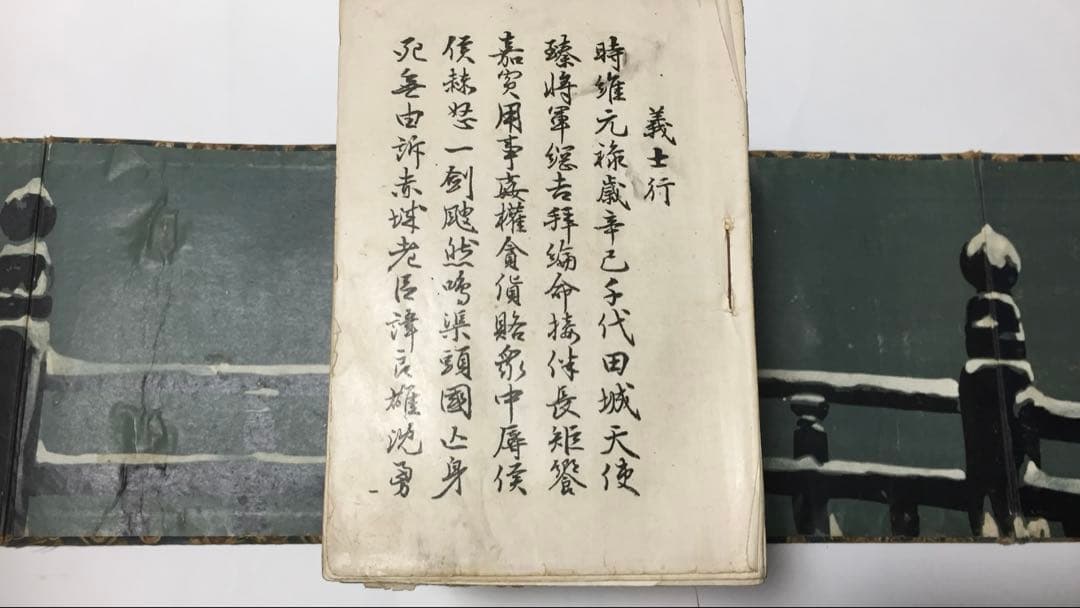 義士行
時維元禄歳辛巳千代田城天使
臻將軍綱吉拜綸命接伴長矩饗
嘉賓用事姦權貪貨賂衆中辱侯
侯赫怒一剣颯然鳴渠頭國亡身
死無由訴赤城老臣諱良雄沈勇